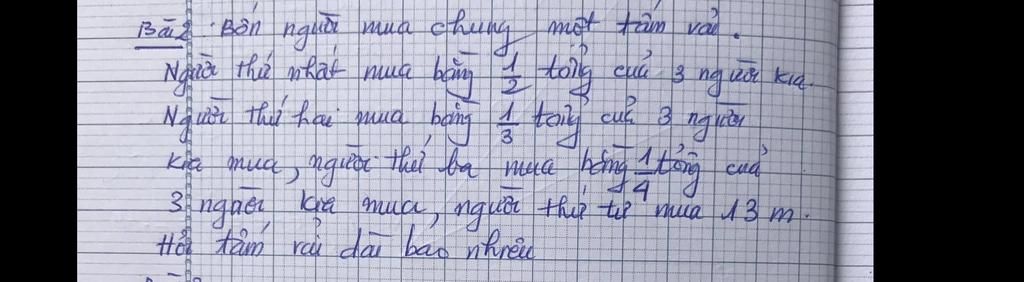 Bài 2 Bốn người mua chung một tấm vải.
Người thứ nhất mua bằng 1/2 tổng của 3 người kia.
Người thứ hai mua bằng 1/3 tổng của 3 người
kia mua, người thứ ba mua bằng 1/4 tổng của
3 người kia mua, người thứ tư mua 13 m.
Hỏi tấm vải dài bao nhiêu